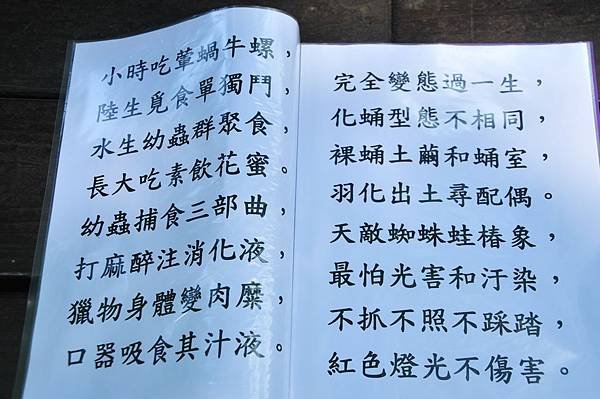 小時吃葷蝸牛螺，
陸生覓食單獨鬥，
水生幼蟲群聚食，
長大吃素飲花蜜。
幼蟲捕食三部曲，
打麻醉注消化液，
獵物身體變肉糜，
口器吸食其汁液。
完全變態過一生，
化蛹型態不相同，
裸蛹土繭和蛹室，
羽化出土尋配偶。
天敵蜘蛛蛙椿象，
最怕光害和汙染，
不抓不照不踩踏，
紅色燈光不傷害。